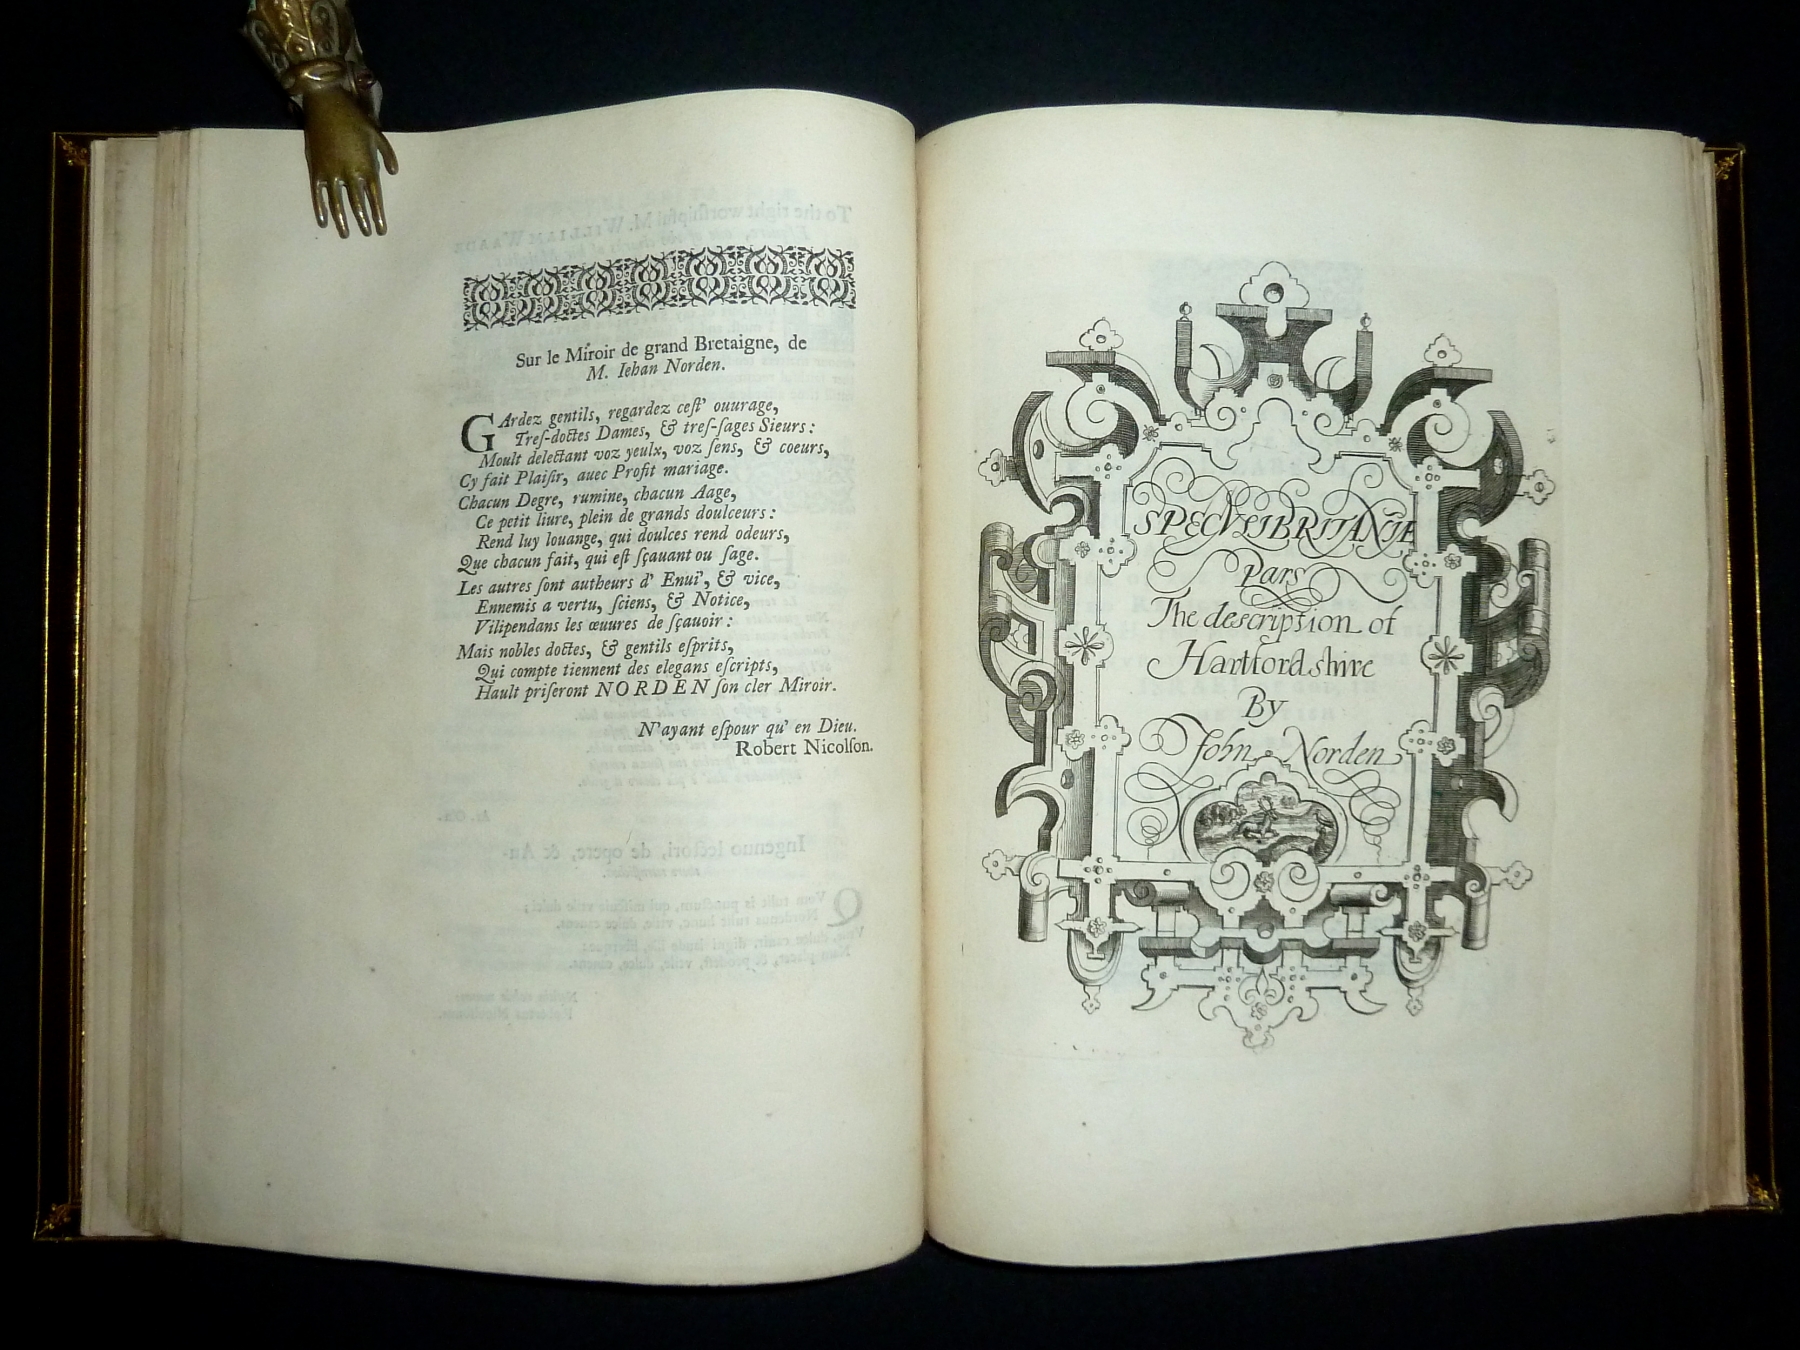 Sur le Miroir de grand Bretaigne, de
M. Iehan Norden.
GArdez gentils, regardez ceſt' ouurage,
Treſ-doctes Dames, & treſ-ſages Sieurs:
Moult delectant voz yeulx, voz ſens, & coeurs,
Cy fait Plaiſir, auec Profit mariage.
Chacun Degre, rumine, chacun Aage,
Ce petit liure, plein de grands doulceurs:
Rend luy louange, qui doulces rend odeurs,
Que chacun fait, qui eſt ſçauant ou ſage.
Les autres ſont autheurs d' Enui', & vice,
Ennemis a vertu, ſciens, & Notice,
Vilipendans les œuures de ſçauoir:
Mais nobles doctes, & gentils eſprits,
Qui compte tiennent des elegans eſcripts,
Hault priſeront NORDEN ſon cler Miroir.
N'ayant eſpour qu' en Dieu.
Robert Nicolſon.
SPECVLI BRITANIÆ
Pars
The description of
Hartfordshire
By
John Norden